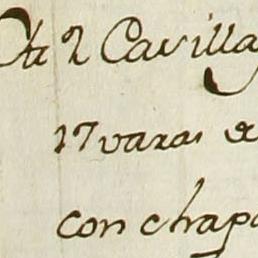 2 Cavilla
17 varas de
con chapa